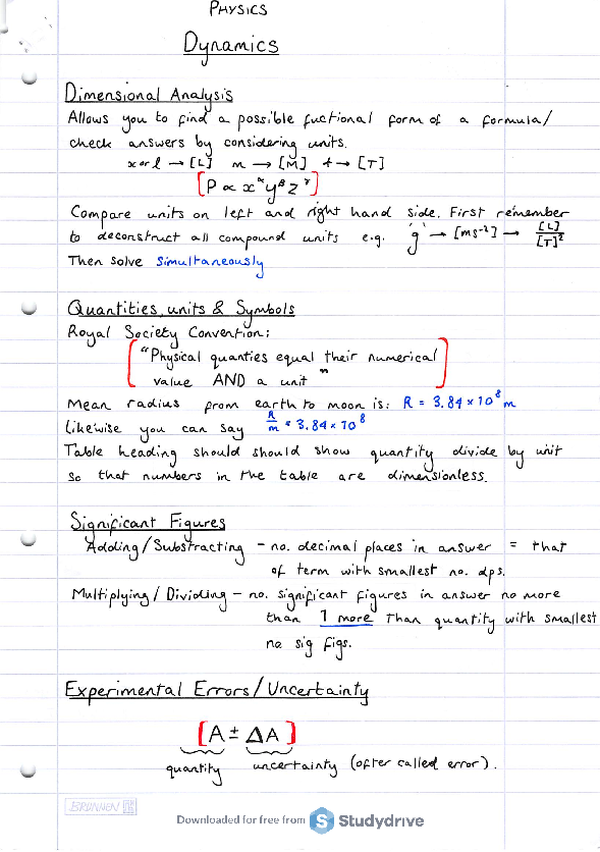 PHYSICS
Dynamics
Dimensional Analysis
Allows you to find a possible fuctional form of a formula/
check answers by considering units.
x or l → [L] m → [M] t → [T]
[P ∝ x^α y^β z^γ]
Compare units on left and right hand side. First remember
to deconstruct all compound units e.g. 'g' → [ms⁻²] → [L]/[T]²
Then solve simultaneously
Quantities, units & Symbols
Royal Society Convention:
["Physical quanties equal their numerical
value AND a unit"]
Mean radius from earth to moon is: R = 3.84 × 10⁸ m
likewise you can say R/m = 3.84 × 10⁸
Table heading should should show quantity divide by unit
so that numbers in the table are dimensionless.
Significant Figures
Adding/Substracting - no. decimal places in answer = that
of term with smallest no. dps.
Multiplying/Dividing - no. significant figures in answer no more
than 1 more than quantity with smallest
no sig figs.
Experimental Errors/Uncertainty
[A ± ΔA]
quantity uncertainty (often called error).
BRUNNEN
Downloaded for free from Studydrive